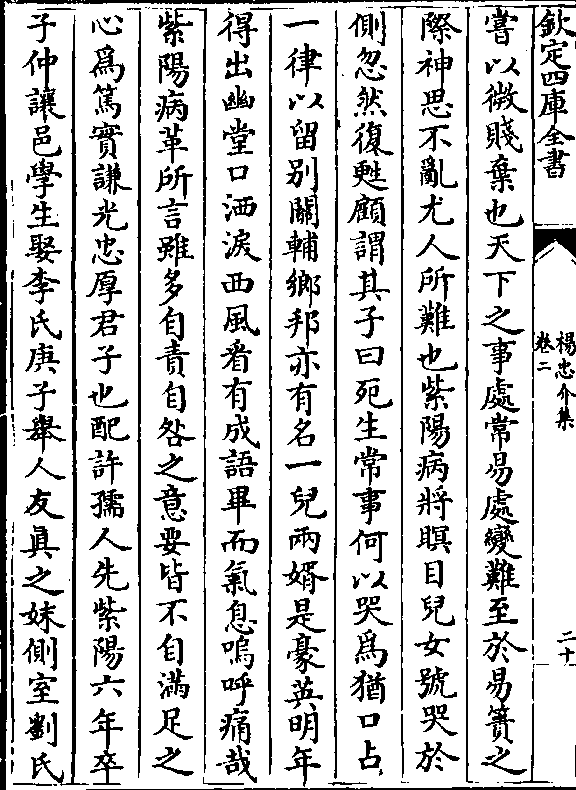 欽定四庫全書
楊忠介集
卷二
二十
嘗以微賤棄也天下之事處常易處變難至於易簀之
際神思不亂尤人所難也紫陽病將瞑目兒女號哭於
側忽然復甦顧謂其子曰死生常事何以哭為猶口占
一律以留别關輔鄉邦亦有名一兒兩婿是豪英明年
得出幽堂口洒淚西風看有成語畢而氣息嗚呼痛哉
紫陽病革所言雖多自責自咎之意要皆不自滿足之
心為篤實謙光忠厚君子也配許孺人先紫陽六年卒
子仲讓邑學生娶李氏庚子舉人友真之妹側室劉氏